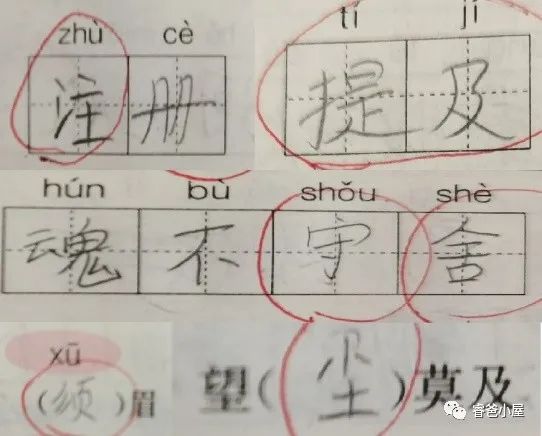 zhù cè tí jí
注册 提及
hún bù shǒu shè
魂不守舍
xū
(须)眉 望(尘)莫及
睿爸小屋